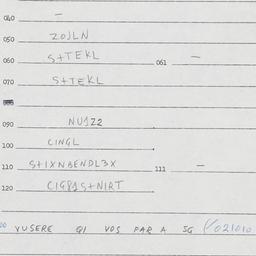 040 –
050 ZOJLN
060 S+TEKL 061 –
070 S+TEKL
090 NU1Z2
100 CINGL
110 S+IXNBENDL3X 111 –
120 S+NIRT
VUSERE QI VOS PAR A SG